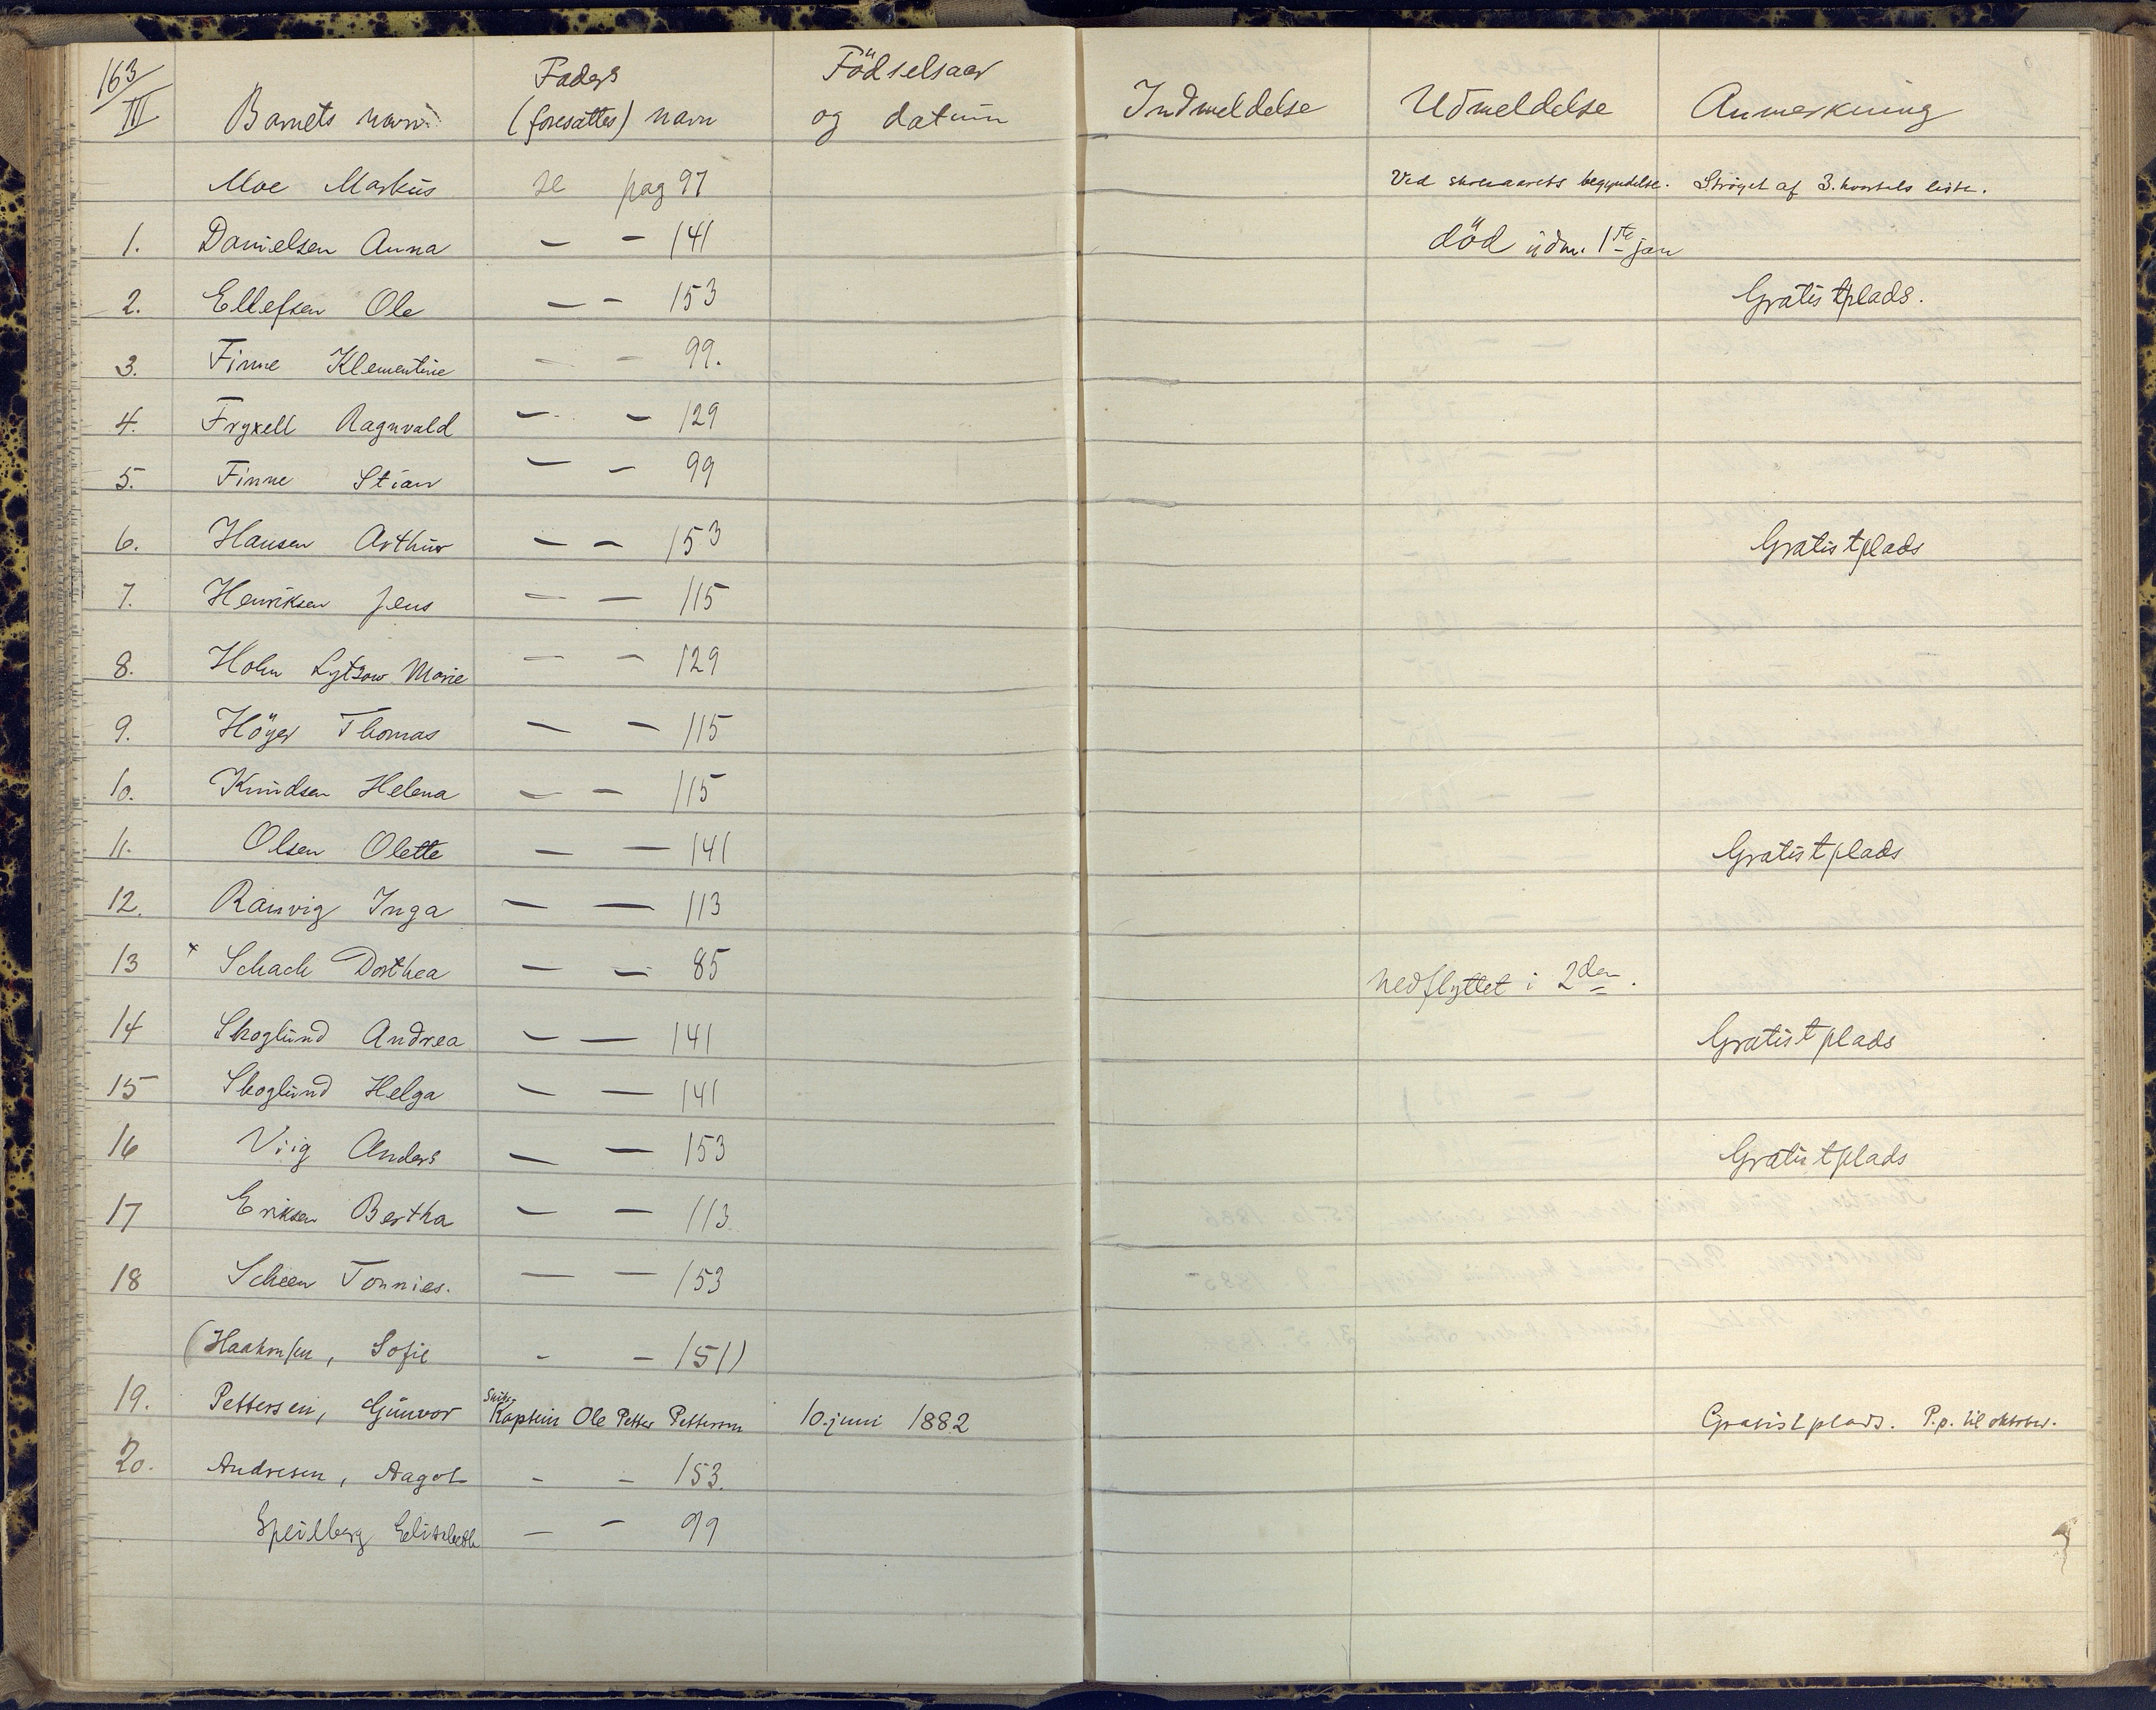 163/III Barnets navn Faders (foresattes) navn Födselsaar og datum Indmeldelse Udmeldelse Anmerkning
Moe Markus se pag 97 Ved skoleaarets begyndelse. Ströget af 3. kvartals liste.
1. Danielsen Anna — — 141 död udm. 1ste jan
2. Ellefsen Ole — — 153 Gratistplads.
3. Finne Klementine — — 99.
4. Fryxell Ragnvald — — 129
5. Finne Stian — — 99
6. Hansen Arthur — — 153 Gratistplads
7. Henriksen Jens — — 115
8. Holm Lytzow Marie — — 129
9. Höyer Thomas — — 115
10. Knudsen Helena — — 115
11. Olsen Olette — — 141 Gratistplads
12. Rauvig Inga — — 113
13 x Schach Dorthea — — 85 nedflyttet i 2den.
14 Skoglund Andrea — — 141 Gratistplads
15 Skoglund Helga — — 141
16 Viig Anders — — 153 Gratistplads
17 Eriksen Bertha — — 113.
18 Scheen Tonnies. — — 153
(Haakonsen, Sofie - — 151)
19. Pettersen, Gunvor Skibs-Kaptein Ole Petter Pettersen 10. juni 1882 Gratistplads. P.p. til oktober.
20. Andresen, Aagot - - 153.
Speilberg Elisabeth — — 99